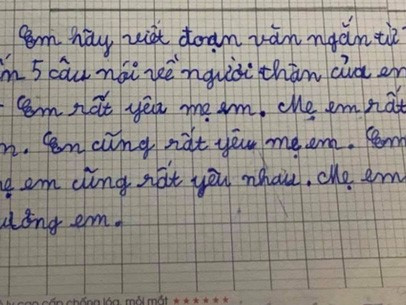 Em hãy viết đoạn văn ngắn từ
5 câu nói về người thân của em
Em rất yêu mẹ em. Mẹ em rất
Em cũng rất yêu mẹ em. Em
mẹ em cũng rất yêu nhau. Mẹ em
em.
cao cấp chống lóa, mỏi mắt ★★★★★★